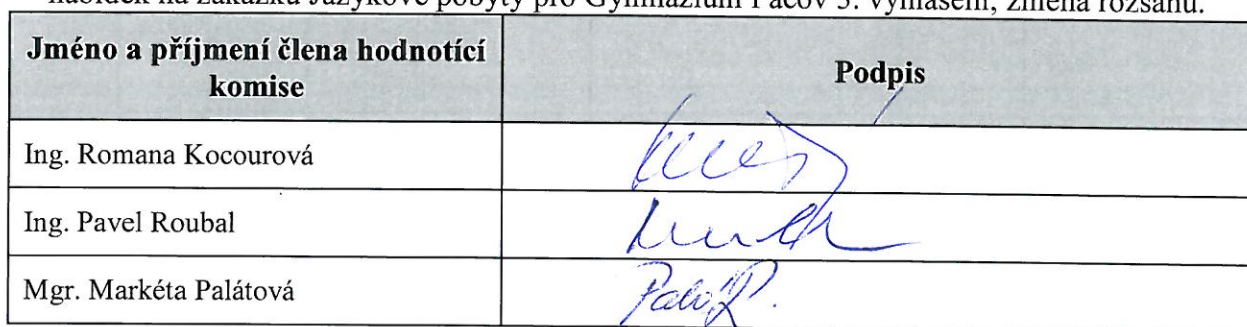 nabídek na zakázku Jazykové pobyty pro Gymnázium Pacov 3. vyhlášení, změna rozsahu.
Jméno a příjmení člena hodnotící
komise
Podpis
Ing. Romana Kocourová
Ing. Pavel Roubal
Mgr. Markéta Palátová